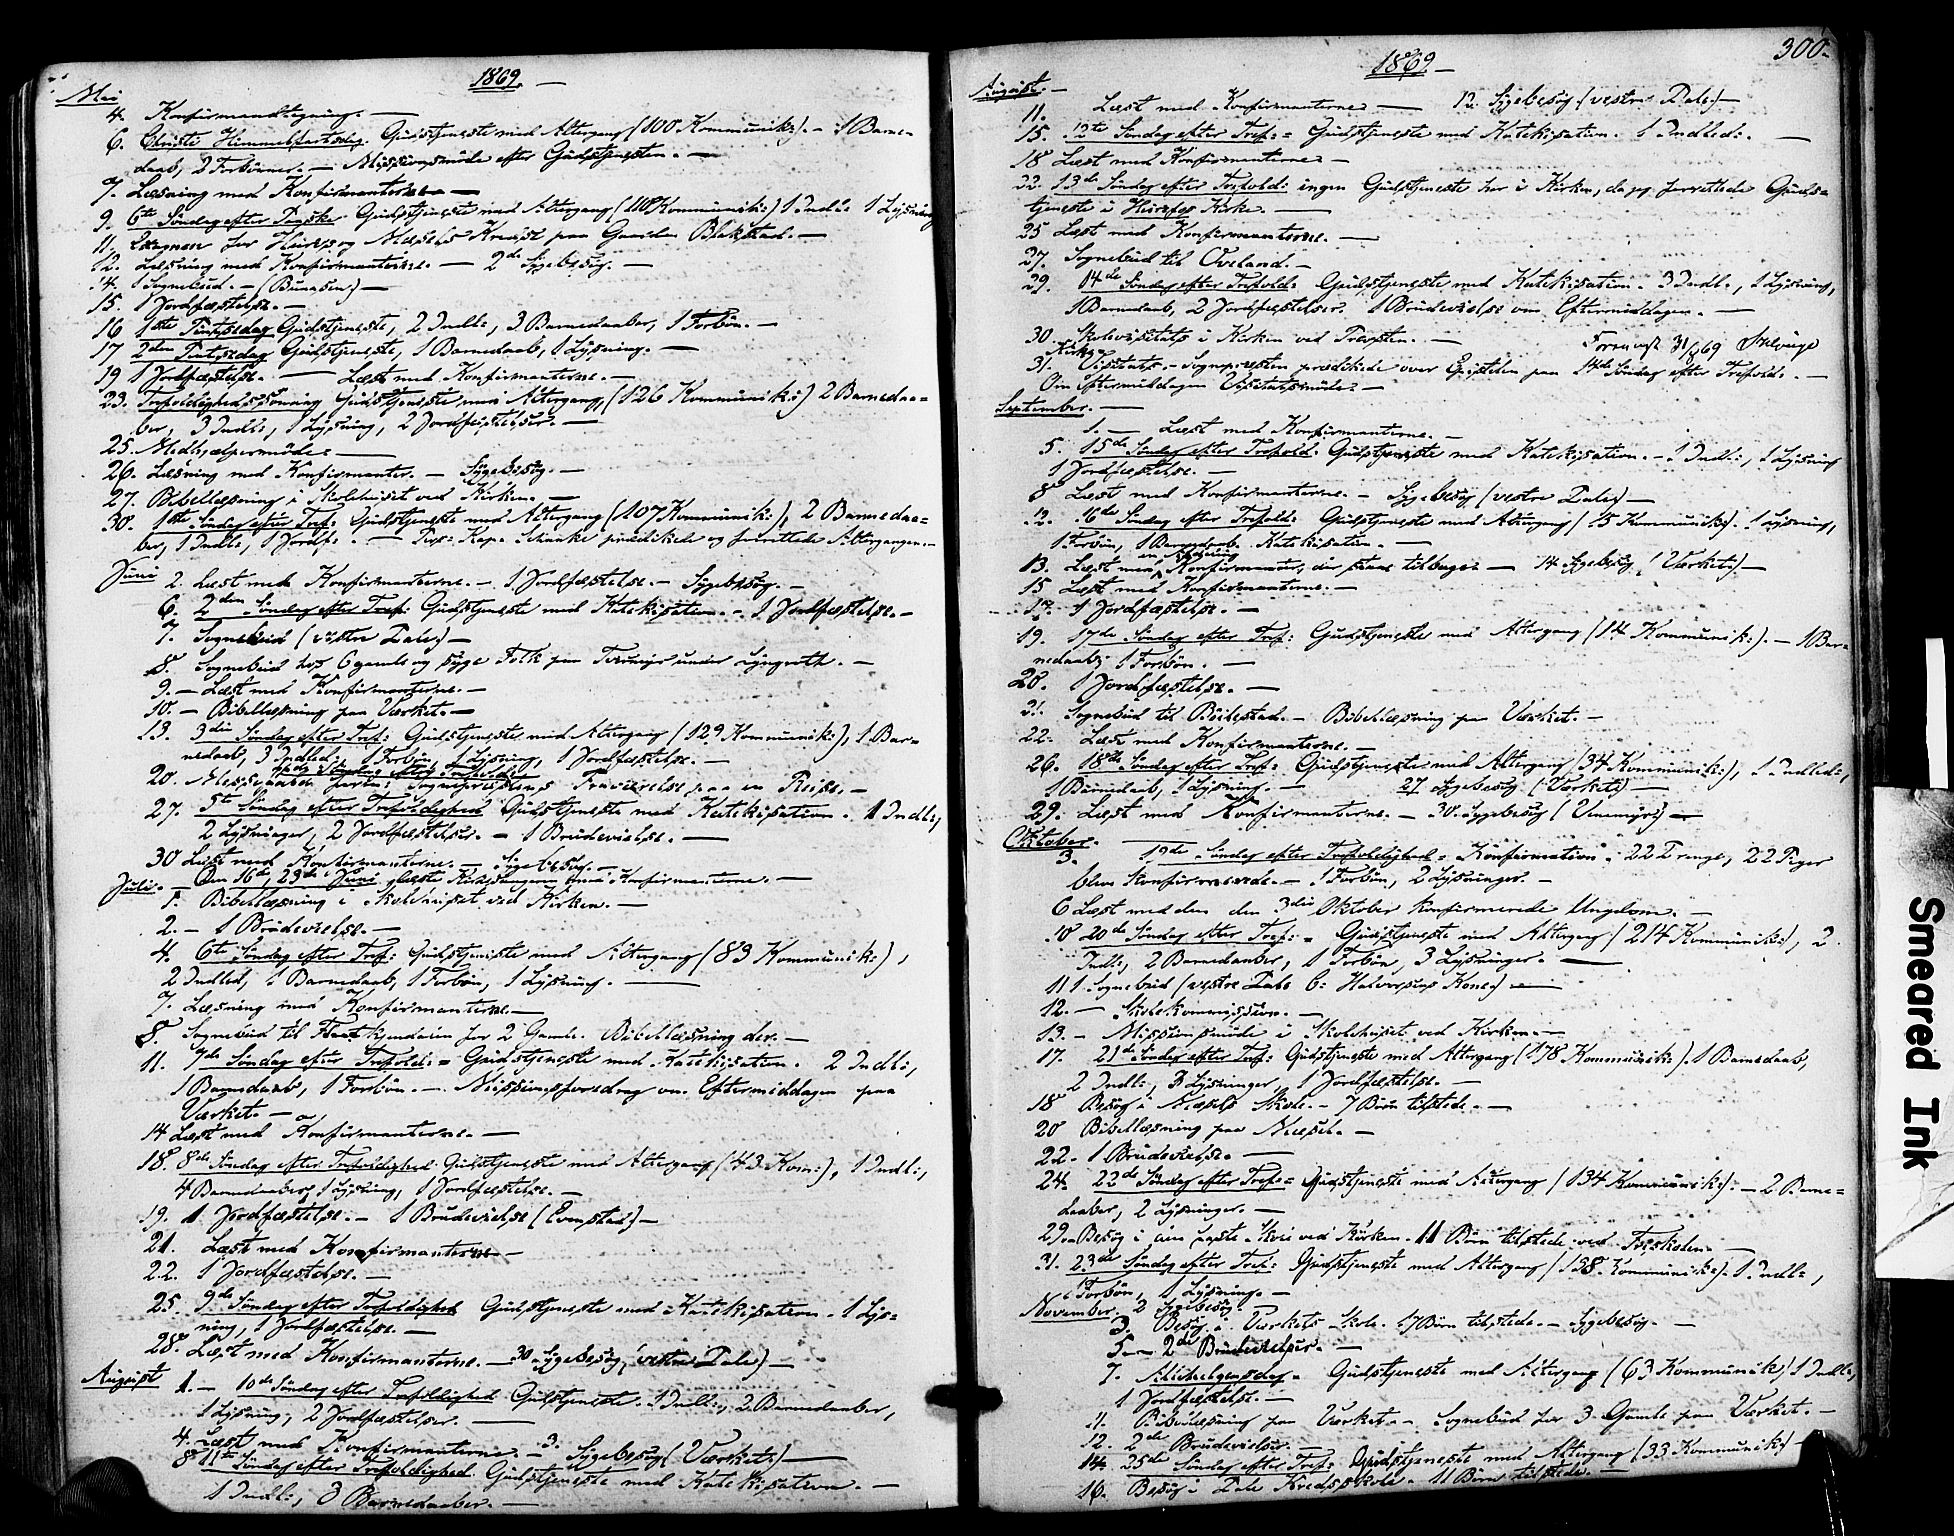 1869.
Mai
4. Konfirmandtegning. —
6. Christi Himmelfartsdag. Gudstjeneste med Altergang (100 Kommunik:). – 1 Barne-
daab, 2 Forbönner. — Missionsmöde efter Gudstjenesten. —
7. Læsning med Konfirmanterne —
9. 6te Söndag efter Paaske Gudstjeneste med Altergang (118 Kommunik:) 1 Indl: 1 Lysning
11. for Heirefos og Næsets Kreds paa Gaarden Blakstad. —
12. Læsning med Konfirmanterne. — 2de Sygebesög. —
14. 1 Sognebud. – (Buaasen) —
15. 1 Jordfæstelse. —
16 1ste Pintsedag Gudstjeneste, 2 Indl:, 3 Barnedaaber, 1 Forbön. —
17 2den Pintsedag Gudstjeneste, 1 Barnedaab, 1 Lysning. —
19 1 Jordfæstelse. — Læst med Konfirmanterne. —
23. Trefoldighedssöndag Gudstjeneste med Altergang, (126 Kommunik:) 2 Barnedaa-
ber, 3 Indl:, 1 Lysning, 2 Jordfæstelser. —
25. Medhjælpermöde —
26. Læsning med Konfirmanter. — Sygebesög. —
27. Bibellæsning i Skolehuset ved Kirken. —
30. 1ste Söndag efter Tref: Gudstjeneste med Altergang (107 Kommunik:), 2 Barnedaa-
ber, 1 Indl:, 1 Jordf: . — Pers: Kap. Schanke prædikede og forrettede Altergangen. —
Juni
2. Læst med Konfirmanterne. – 1 Jordfæstelse. – Sygebesög. —
6. 2den Söndag efter Tref: Gudstjeneste med Katekisation. – 1 Jordfæstelse. —
7. Sognebud (vestre Dale) —
8. Sognebud hos 6 gamle og syge Folk paa under Lyngroth. —
9. – Læst med Konfirmanterne. —
10. – Bibellæsning paa Værket. —
13. 3die Söndag efter Tref: Gudstjeneste med Altergang (129 Kommunik:), 1 Bar-
nedaab, 3 Indled:, 1 Forbön, 1 Lysning, 1 Jordfæstelse. —
4de Söndag efter Trefoldigh:
20. Messefald Sognepræstens Fraværelse paa en Reise. —
27. 5te Söndag efter Trefoldighed Gudstjeneste med Katekisation. 1 Indl:,
2 Lysninger, 2 Jordfæstelser. – 1 Brudevielse. —
30 Læst med Konfirmanterne. – Sygebesög. —
Juli. – Den 16de, 23de Juni læste Kirkesangeren med Konfirmanterne. —
1. Bibellæsning i Skolehuset ved Kirken. —
2. – 1 Brudevielse. —
4. 6te Söndag efter Tref: Gudstjeneste med Altergang (83 Kommunik:),
2 Indled, 1 Barnedaab, 1 Forbön, 1 Lysning. —
7. Læsning med Konfirmanterne. —
8. Sognebud til for 2 Gamle. Bibellæsning der. —
11. 7de Söndag efter Trefold: = Gudstjeneste med Katekisation. 2 Indl:,
1 Barnedaab, 1 Forbön. — Missionsforedrag om Eftermiddagen paa
Værket. —
14 Læst med Konfirmanterne. —
18. 8de Söndag efter Trefoldighed. Gudstjeneste med Altergang (43 Kom:), 1 Indl:,
4 Barnedaaber, 1 Lysning, 1 Jordfæstelse. —
19. 1 Jordfæstelse. – 1 Brudevielse (Evenstad) —
21. Læst med Konfirmanterne —
22. 1 Jordfæstelse. —
25. 9de Söndag efter Trefoldighed Gudstjeneste med Katekisation. 1 Lys-
ning, 1 Jordfæstelse. —
28. Læst med Konfirmanterne. — 30 Sygebesög (vestre Dale) —
August 1. – 10de Söndag efter Trefoldighed Gudstjeneste. 1 Indl:, 2 Barnedaaber,
1 Lysning, 2 Jordfæstelser. —
4. Læst med Konfirmanterne – 3. Sygebesög (Værket) —
8 11te Söndag efter Trefoldighed. Gudstjeneste med Katekisation. —
1 Indl:, 3 Barnedaaber. —
1869
300.
August. —
11. Læst med Konfirmanterne — 12. Sygebesög (vestre Dale) —
15. 12te Söndag efter Tref: = Gudstjeneste med Katekisation. 1 Indled:. —
18 Læst med Konfirmanterne —
22. 13de Söndag efter Trefold: ingen Gudstjeneste her i Kirken, da jeg forrettede Guds-
tjeneste i Heirefos Kirke. —
25 Læst med Konfirmanterne. —
27. Sognebud til Öveland. —
29. 14de Söndag efter Trefold: Gudstjeneste med Katekisation. 3 Indl:, 1 Lysning,
1 Barnedaab, 2 Jordfæstelser. 1 Brudevielse om Eftermiddagen. —
30. Skolevisitats i Kirken ved Provsten. — Forevist 31/8 69
31. Kirkevisitats. – Sognepræsten prædikede over Epistelen paa 14de Söndag efter Trefold: —
Om Eftermiddagen Visitatsmöde. —
September. —
1. — Læst med Konfirmanterne. —
5. 15de Söndag efter Trefold: Gudstjeneste med Katekisation. – 1 Indl:, 1 Lysning
1 Jordfæstelse. —
8 Læst med Konfirmanterne. – Sygebesög (vestre Dale) —
12. 16de Söndag efter Trefold: Gudstjeneste med Altergang (15 Kommunik:). 1 Lysning,
1 Forbön, 1 Barnedaab. Katekisation. —
13. Læst med en Konfirmant, der tilbage — 14 Sygebesög (Værket) —
15 Læst med Konfirmanterne. —
17. 1 Jordfæstelse. —
19. 17de Söndag efter Tref: Gudstjeneste med Altergang (14 Kommunik:). – 1 Bar-
nedaab; 1 Forbön. —
20. 1 Jordfæstelse. —
21. Sognebud til Böilestad. – Bibellæsning paa Værket. —
22. Læst med Konfirmanterne. —
26. 18de Söndag efter Tref: Gudstjeneste med Altergang (34 Kommunik:), 1 Indled:,
1 Barnedaab, 1 Lysning. — 27. Sygebesög (Værket) —
29. Læst med Konfirmanterne. – 30. Sygebesög (Venemyr) —
Oktober. —
3. 19de Söndag efter Trefoldighed = Konfirmation. 22 Drenge, 22 Piger
bleve Konfirmerede. – 1 Forbön, 2 Lysninger. —
6 Læst med den den 3die Oktober konfirmerede Ungdom. —
10 20de Söndag efter Tref: = Gudstjeneste med Altergang (214 Kommunik:), 2
Indl:, 2 Barnedaaber, 1 Forbön, 3 Lysninger. —
11 1 Sognebud (vestre Dale Halvorsens Kone) —
12. — Skolekommission. —
13. – Missionsmöde i Skolehuset ved Kirken. —
17. 21de Söndag efter Tref: Gudstjeneste med Altergang (178 Kommunik:). 1 Barnedaab,
2 Indl:, 3 Lysninger, 1 Jordfæstelse. —
18 Besög i Næsets Skole. – 7 Börn tilstede. —
20 Bibellæsning paa Næset. —
22. 1 Brudevielse. —
24. 22de Söndag efter Tref: = Gudstjeneste med Altergang (134 Kommunik:). – 2 Barne-
daaber, 2 Lysninger. —
29. Besög i den faste Skole ved Kirken. 11 Börn tilstede ved Friskolen. —
31. 23de Söndag efter Tref: Gudstjeneste med Altergang (138 Kommunik:). 1 Indl:,
1 Forbön, 1 Lysning. —
November. 2 Sygebesög. —
3. Besög i Værkets Skole. 17 Börn tilstede. – Sygebesög. —
5. — 2de Brudevielser. —
7. Allehelgensdag. Gudstjeneste med Altergang (63 Kommunik:) 1 Indl:,
1 Jordfæstelse. —
11. Bibellæsning paa Værket. – Sognebud for 3 Gamle paa Værket. —
12. 2de Brudevielser. —
14. 25de Söndag efter Tref: Gudstjeneste med Altergang (33 Kommunik:) —
16. Besög i Dale Kredsskole. – 11 Börn tilstede. —
Smeared Ink